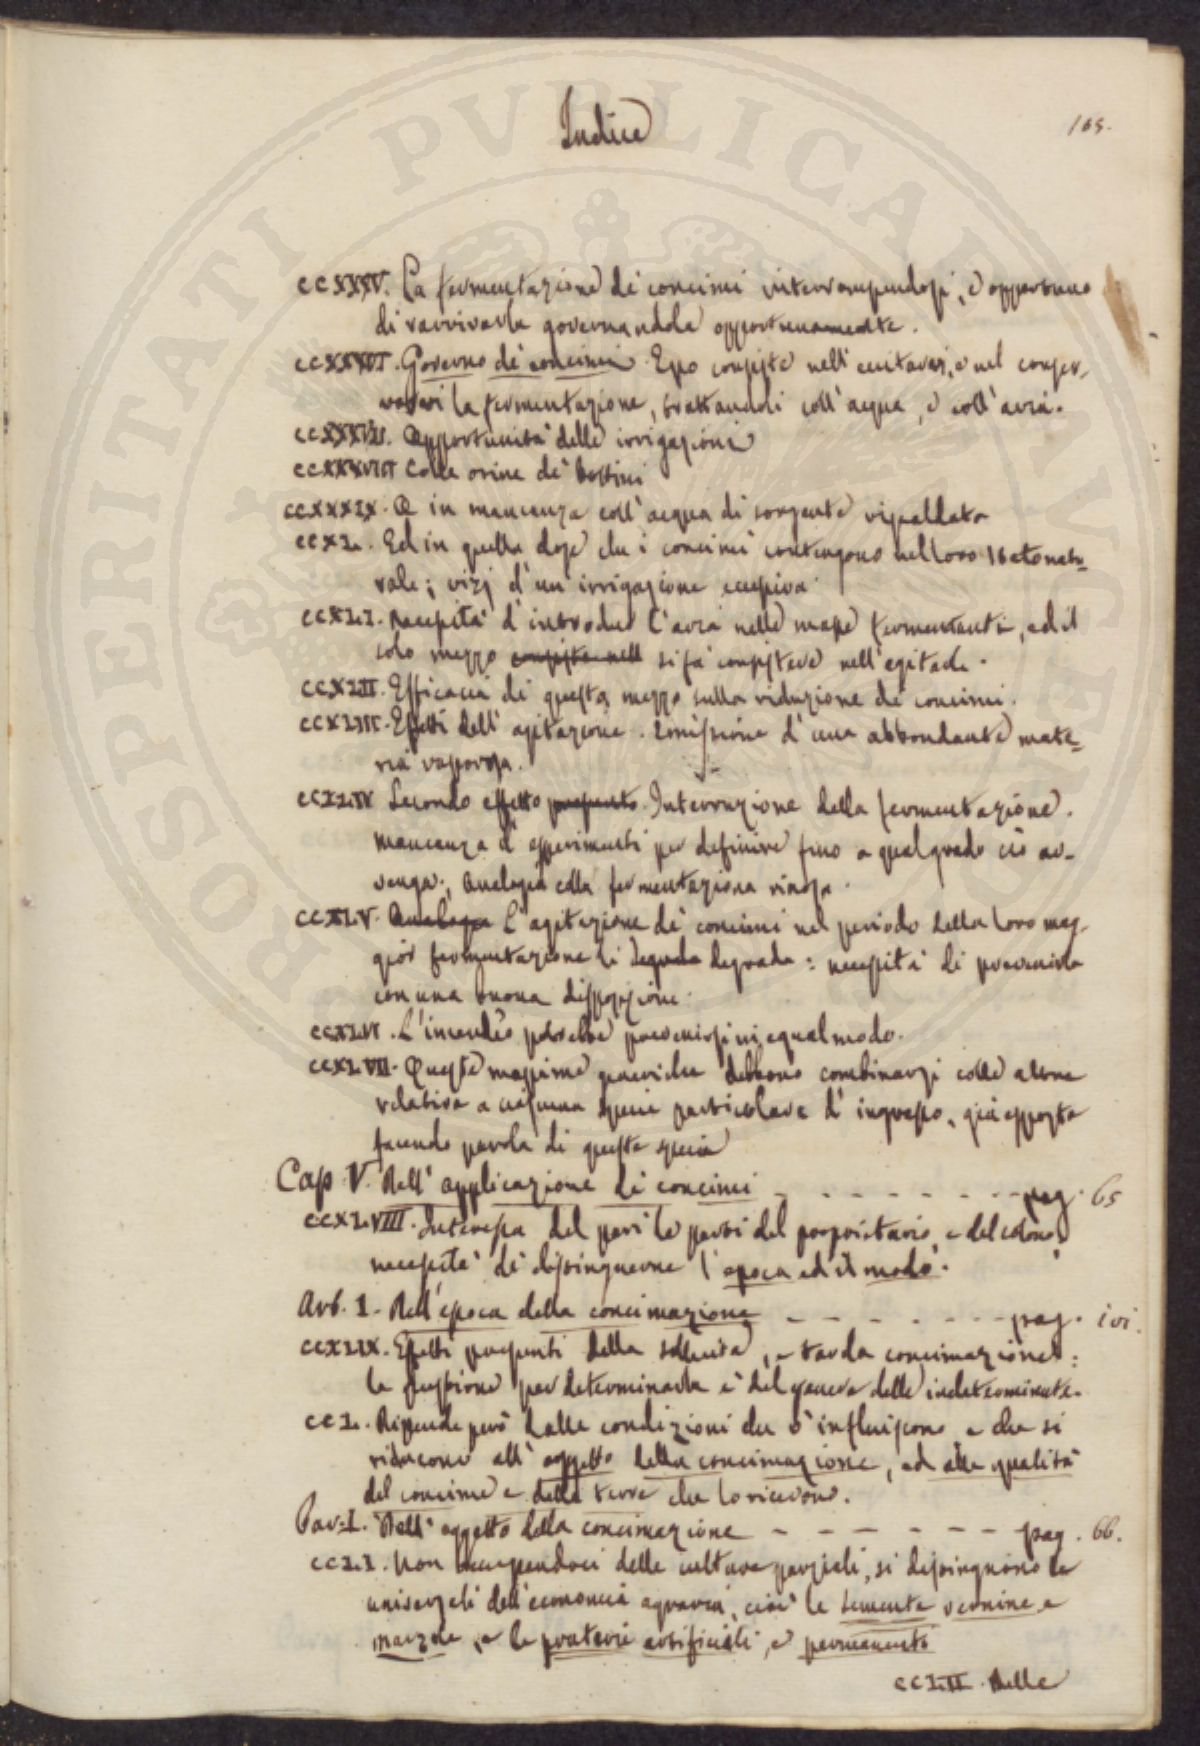 Indice
165.
CCXXXV. La fermentazione de' concimi interrompendosi, è opportuno
di ravvivarla governandola opportunamente.
CCXXXVI. Governo de' concimi. Esso consiste nell' eccitarvi, e nel conser-
varvi la fermentazione, trattandoli coll' acqua, e coll' aria.
CCXXXVII. Opportunità delle irrigazioni
CCXXXVIII Colle orine de' bestiami
CCXXXIX. O in mancanza coll' acqua di sorgente
CCXL. Ed in quella dose che i concimi contengono nel loro stato natu-
rale; vizj d' un irrigazione eccessiva
CCXLI. Necessità d' introdur l'aria nelle masse fermentanti, ed il
solo mezzo consiste nell si fà consistere nell'agitarle.
CCXLII. Efficacia di questo mezzo sulla riduzione de' concimi.
CCXLIII. Effetti dell' agitazione. Emissione d' una abbondante mate-
ria vaporosa.
CCXLIV Secondo effetto Interruzione della fermentazione.
mancanza d' esperimenti per definire fino a qual grado ciò av-
venga; analogia colla fermentazione vinosa.
CCXLV. Analogia L'agitazione de' concimi nel periodo della loro mag-
gior fermentazione li degrada degrada: necessità di prevenirla
con una buona disposizione.
CCXLVI. L'incendio potrebbe prevenirsi in egual modo.
CCXLVII. Queste massime generiche debbono combinarsi colle altre
relative a ciascuna specie particolare d' ingrasso, già esposte
facendo parola di questa specie
Cap V. Dell' applicazione de' concimi - - - - - - - - pag. 65
CCXLVIII. Interessa del pari le parti del proprietario, e del colono,
necessità di distinguerne l'epoca ed il modo.
Art. I. Dell'epoca della concimazione - - - - - - - pag. ivi.
CCXLIX. Effetti della sollecita, e tarda concimazione:
la quistione per determinarla è del genere delle indeterminate.
CCL. Dipende però dalle condizioni che v' influiscono e che si
riducono all' oggetto della concimazione, ed alle qualità
del concime e della terra che lo ricevono.
Par. I. Dell' oggetto della concimazione - - - - - - - pag. 66.
CCLI. Non occupandoci delle culture parziali, si distinguono le
universali dell' economia agraria, cioè le semente vernine, e
marzole, e le praterie artificiali, e permanenti
CCLII. Delle